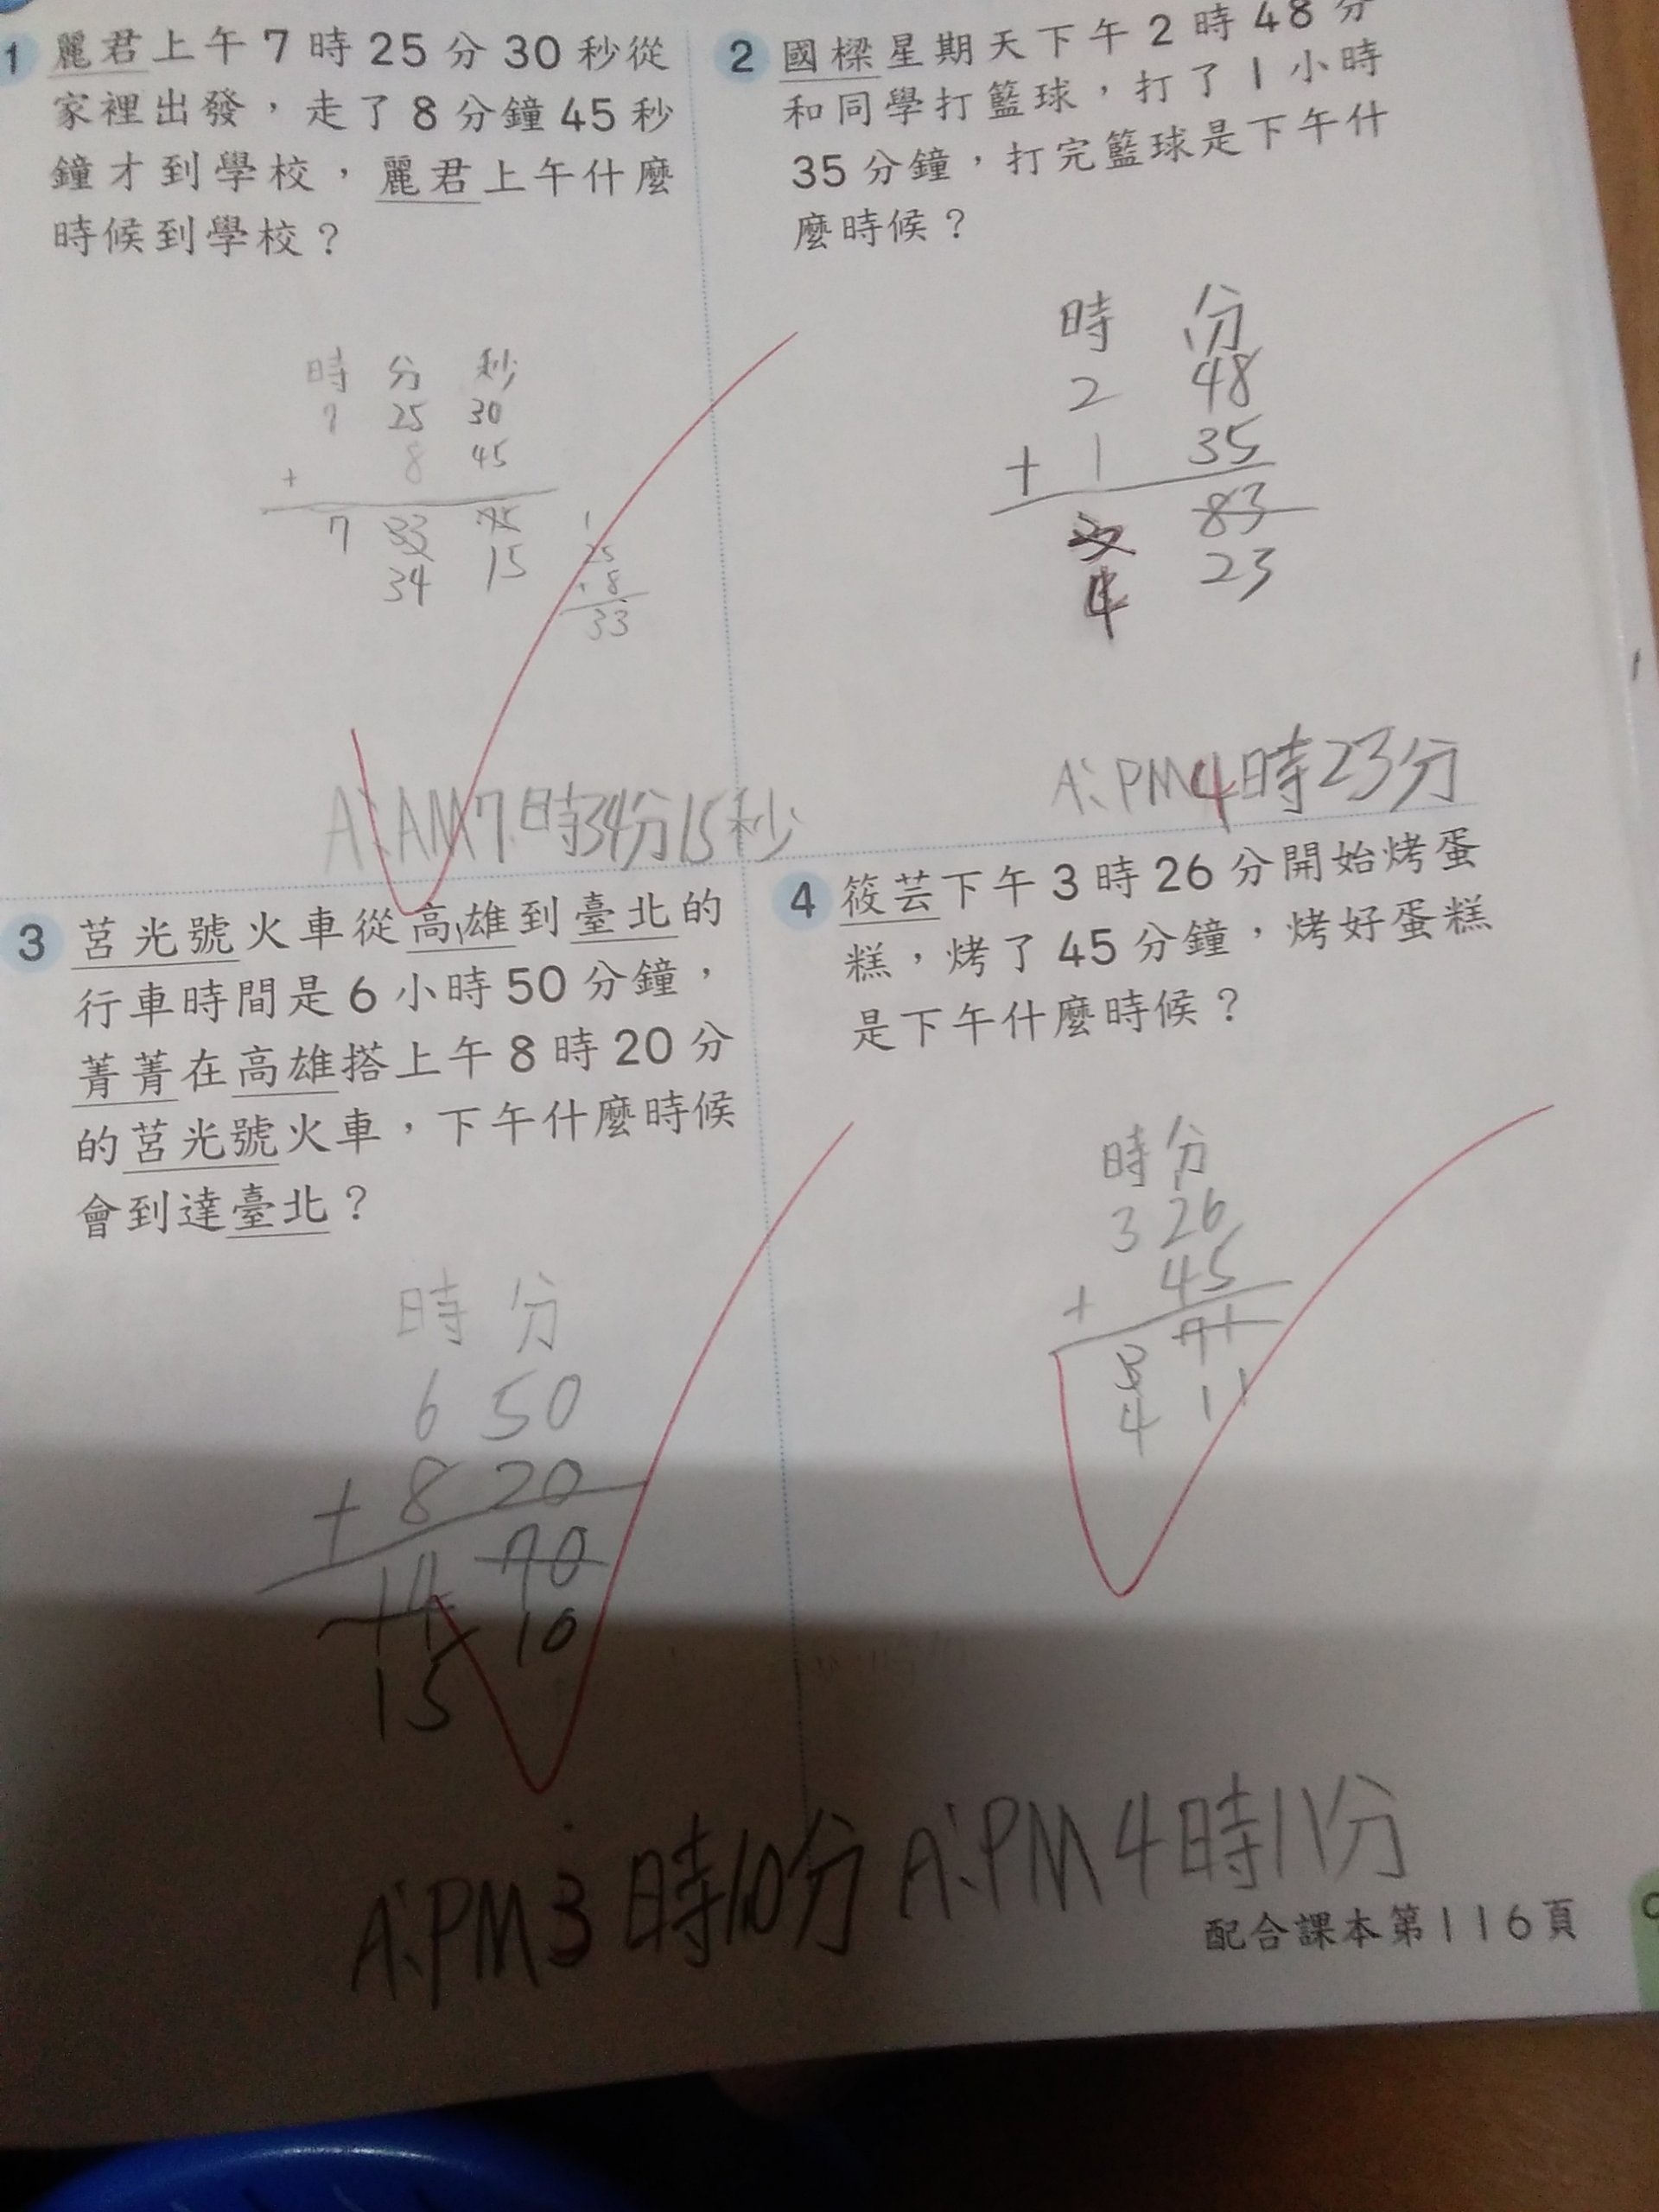 1 麗君上午7時25分30秒從
家裡出發，走了8分鐘45秒
鐘才到學校，麗君上午什麼
時候到學校？
時 分 秒
7 25 30
+ 8 45
7 33 75
34 15
1
25
+8
33
A：AM7時34分15秒
2 國樑星期天下午2時48分
和同學打籃球，打了1小時
35分鐘，打完籃球是下午什
麼時候？
時 分
2 48
+ 1 35
83
4 23
A：PM4時23分
3 莒光號火車從高雄到臺北的
行車時間是6小時50分鐘，
菁菁在高雄搭上午8時20分
的莒光號火車，下午什麼時候
會到達臺北？
時 分
6 50
+ 8 20
14 70
15 10
A：PM3時10分
4 筱芸下午3時26分開始烤蛋
糕，烤了45分鐘，烤好蛋糕
是下午什麼時候？
時 分
3 26
+ 45
3 71
4 11
A：PM4時11分
配合課本第116頁